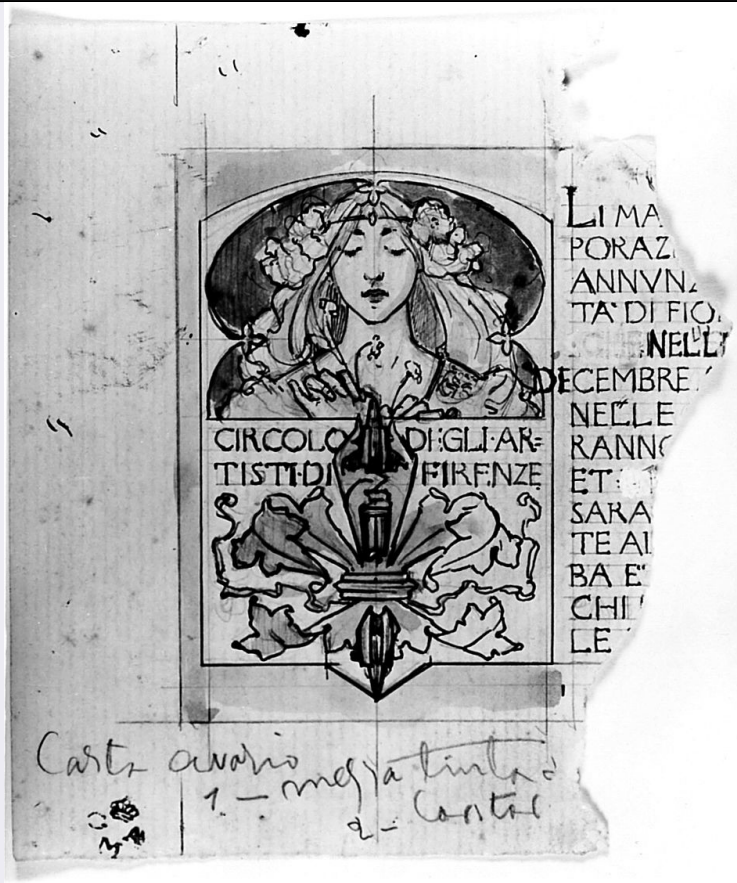 CIRCOLO DEGLI·AR=
TISTI·DI FIRENZE
LI MA
PORAZ
ANNVNZ
TA'DI FIO
NELL
DECEMBRE
NELLE
RANNO
ET
SARA
TE AL
BA E
CHI
LE
Carta avorio
1 – mezza tinta
2 –